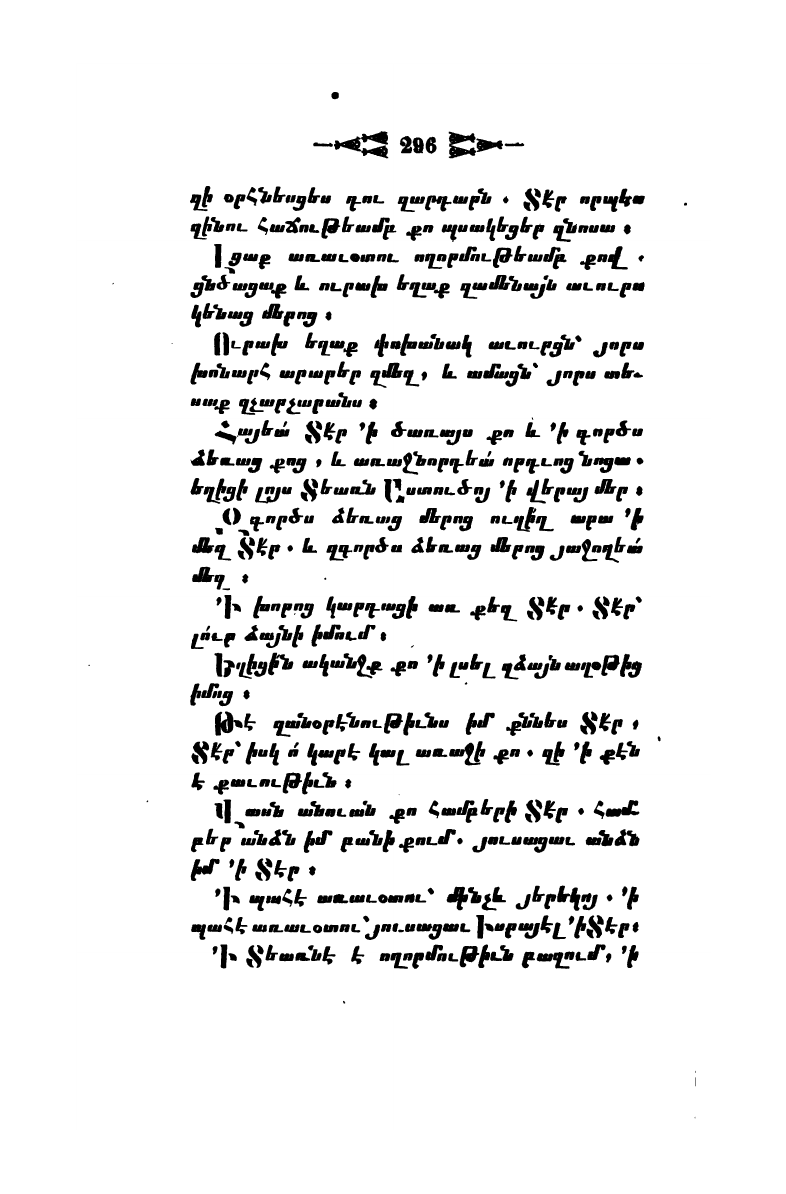 296
զի օրհնեսցես դու զարդարն . Տէր որպէս
զինու հաճութեամբ քո պսակեցեր զնոսա ։
Լցաք առաւօտու ողորմութեամբ քով .
ցնծացաք և ուրախ եղաք զամենայն աւուրս
կենաց մերոց ։
Ուրախ եղաք փոխանակ աւուրցն՝ յորս
խոնարհ արարեր զմեզ , և ամացն՝ յորս տե-
սաք զչարչարանս ։
Հայեա՛ Տէր ՚ի ծառայս քո և ՚ի գործս
ձեռաց քոց , և առաջնորդեա՛ որդւոց նոցա .
եղիցի լոյս Տեառն Աստուծոյ ՚ի վերայ մեր ։
Զգործս ձեռաց մերոց ուղիղ արա ՚ի
մեզ Տէր . և զգործս ձեռաց մերոց յաջողեա՛
մեզ ։
՚Ի խորոց կարդացի առ քեզ Տէր . Տէր՝
լո՛ւր ձայնի իմում ։
Եղիցի՛ն ականջք քո ՚ի լսել զձայն աղօթից
իմոց ։
Թէ զանօրէնութիւնս իմ քննես Տէր ,
Տէր՝ իսկ ո՛ կարէ կալ առաջի քո . զի ՚ի քէն
է քաւութիւն ։
Վասն անուան քո համբերի Տէր . համ-
բեր անձն իմ բանի քում . յուսացաւ անձն
իմ ՚ի Տէր ։
՚Ի պահէ առաւօտու՝ մինչև յերեկոյ . ՚ի
պահէ առաւօտու՝ յուսացաւ Իսրայէլ ՚ի Տէր ։
՚Ի Տեառնէ է ողորմութիւն բազում , ՚ի